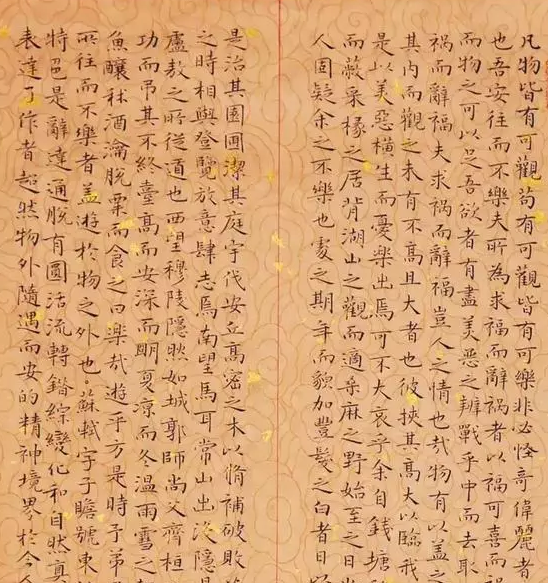 凡物皆有可觀苟有可觀皆有可樂非必怪奇偉麗者
也吾安往而不樂夫所為求福而辭禍者以福可喜而禍
而物之可以足吾欲者有盡美惡之辨戰乎中而去取
禍而辭福夫求禍而辭福豈人之情也哉物有以蓋之
其內而觀之未有不高且大者也彼挾其高大以臨我
是以美惡橫生而憂樂出焉可不大哀乎余自錢塘
而蔽采椽之居背湖山之觀而適桑麻之野始至之日
人固疑余之不樂也處之期年而貌加豐髮之白者日
是治其園圃潔其庭宇伐安丘高密之木以脩補破敗
之時相與登覽放意肆志焉南望馬耳常山出沒隱
盧敖之所從遁也西望穆陵隱然如城郭師尚父齊桓
功而吊其不終臺高而安深而明夏涼而冬溫雨雪之
魚釀秫酒瀹脫粟而食之曰樂哉遊乎方是時予弟
所往而不樂者蓋遊於物之外也。蘇軾字子瞻號東
特色是辭達通脫有圓活流轉錯綜變化和自然真
表達了作者超然物外隨遇而安的精神境界於今